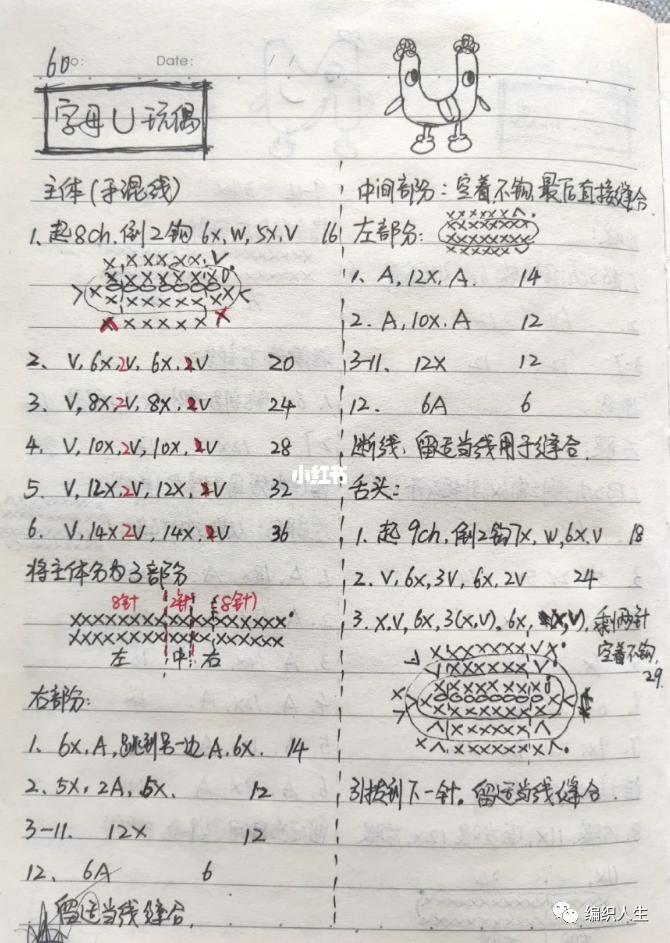 60
No:
Date: / /
字母U玩偶
主体(手混线)
1. 起8ch, 倒2钩 6x, W, 5X, V 16
2. V, 6x, 2V, 6x, 2V 20
3. V, 8x, 2V, 8x, 2V 24
4. V, 10x, 2V, 10x, 2V 28
5. V, 12x, 2V, 12x, 2V 32
6. V, 14x, 2V, 14x, 2V 36
将主体分为3部分
8针 2针 (8针)
左 中 右
右部分:
1. 6x, A, 跳到另一边 A, 6x. 14
2. 5x, 2A, 5x. 12
3-11. 12x 12
12. 6A 6
留适当线缝合.
中间部分: 空着不钩, 最后直接缝合.
左部分:
1. A, 12x, A. 14
2. A, 10x. A 12
3-11. 12x 12
12. 6A 6
断线, 留适当线用于缝合.
舌头:
1. 起9ch, 倒2钩7x, W, 6x, V 18
2. V, 6x, 3V, 6x, 2V 24
3. x, V, 6x, 3(x,V), 6x, (x,V), 剩两针
空着不钩,
29.
引拔到下一针。留适当线缝合.
小红书
编织人生